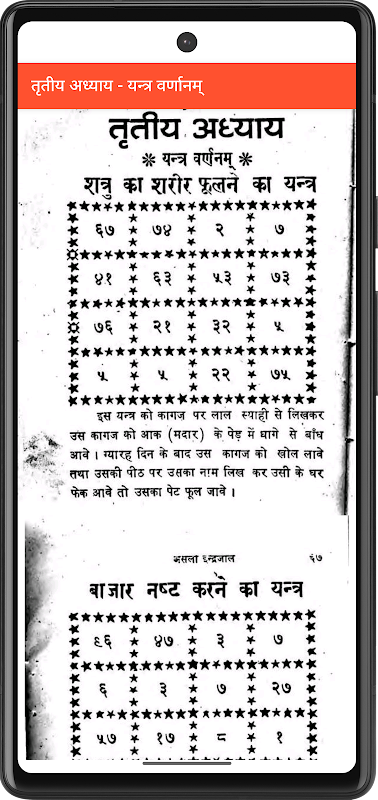 तृतीय अध्याय - यन्त्र वर्णानम्
तृतीय अध्याय
❋ यन्त्र वर्णनम् ❋
शत्रु का शरीर फूलने का यन्त्र
६७ ७४ २ ७
४१ ६३ ५३ ७३
७६ २१ ३२ ५
५ ५ २२ ७५
इस यन्त्र को कागज पर लाल स्याही से लिखकर
उस कागज को आक (मदार) के पेड़ में धागे से बाँध
आवे । ग्यारह दिन के बाद उस कागज को खोल लावे
तथा उसकी पीठ पर उसका नाम लिख कर उसी के घर
फेक आवे तो उसका पेट फूल जावे ।
असली इन्द्रजाल ६७
बाजार नष्ट करने का यन्त्र
९६ ४७ ३ ७
६ ३ ७ २७
५७ १७ ८ १